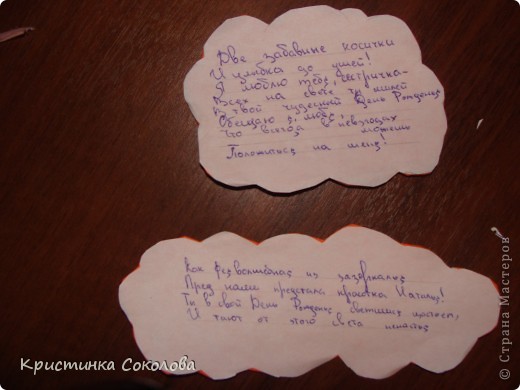 Две забавные косички
И улыбка до ушей!
Я люблю тебя, сестричка
Всех на свете ты милей
В твой чудесный День Рожденья
Обещаю я, любя,
Что всегда в невзгодах можешь
Положиться на меня!
Как фея волшебная из зазеркалья
Пред нами предстала красотка Наталья!
Ты в свой День Рожденья светишься
И тают от этого света
Кристинка Соколова
© Страна Мастеров